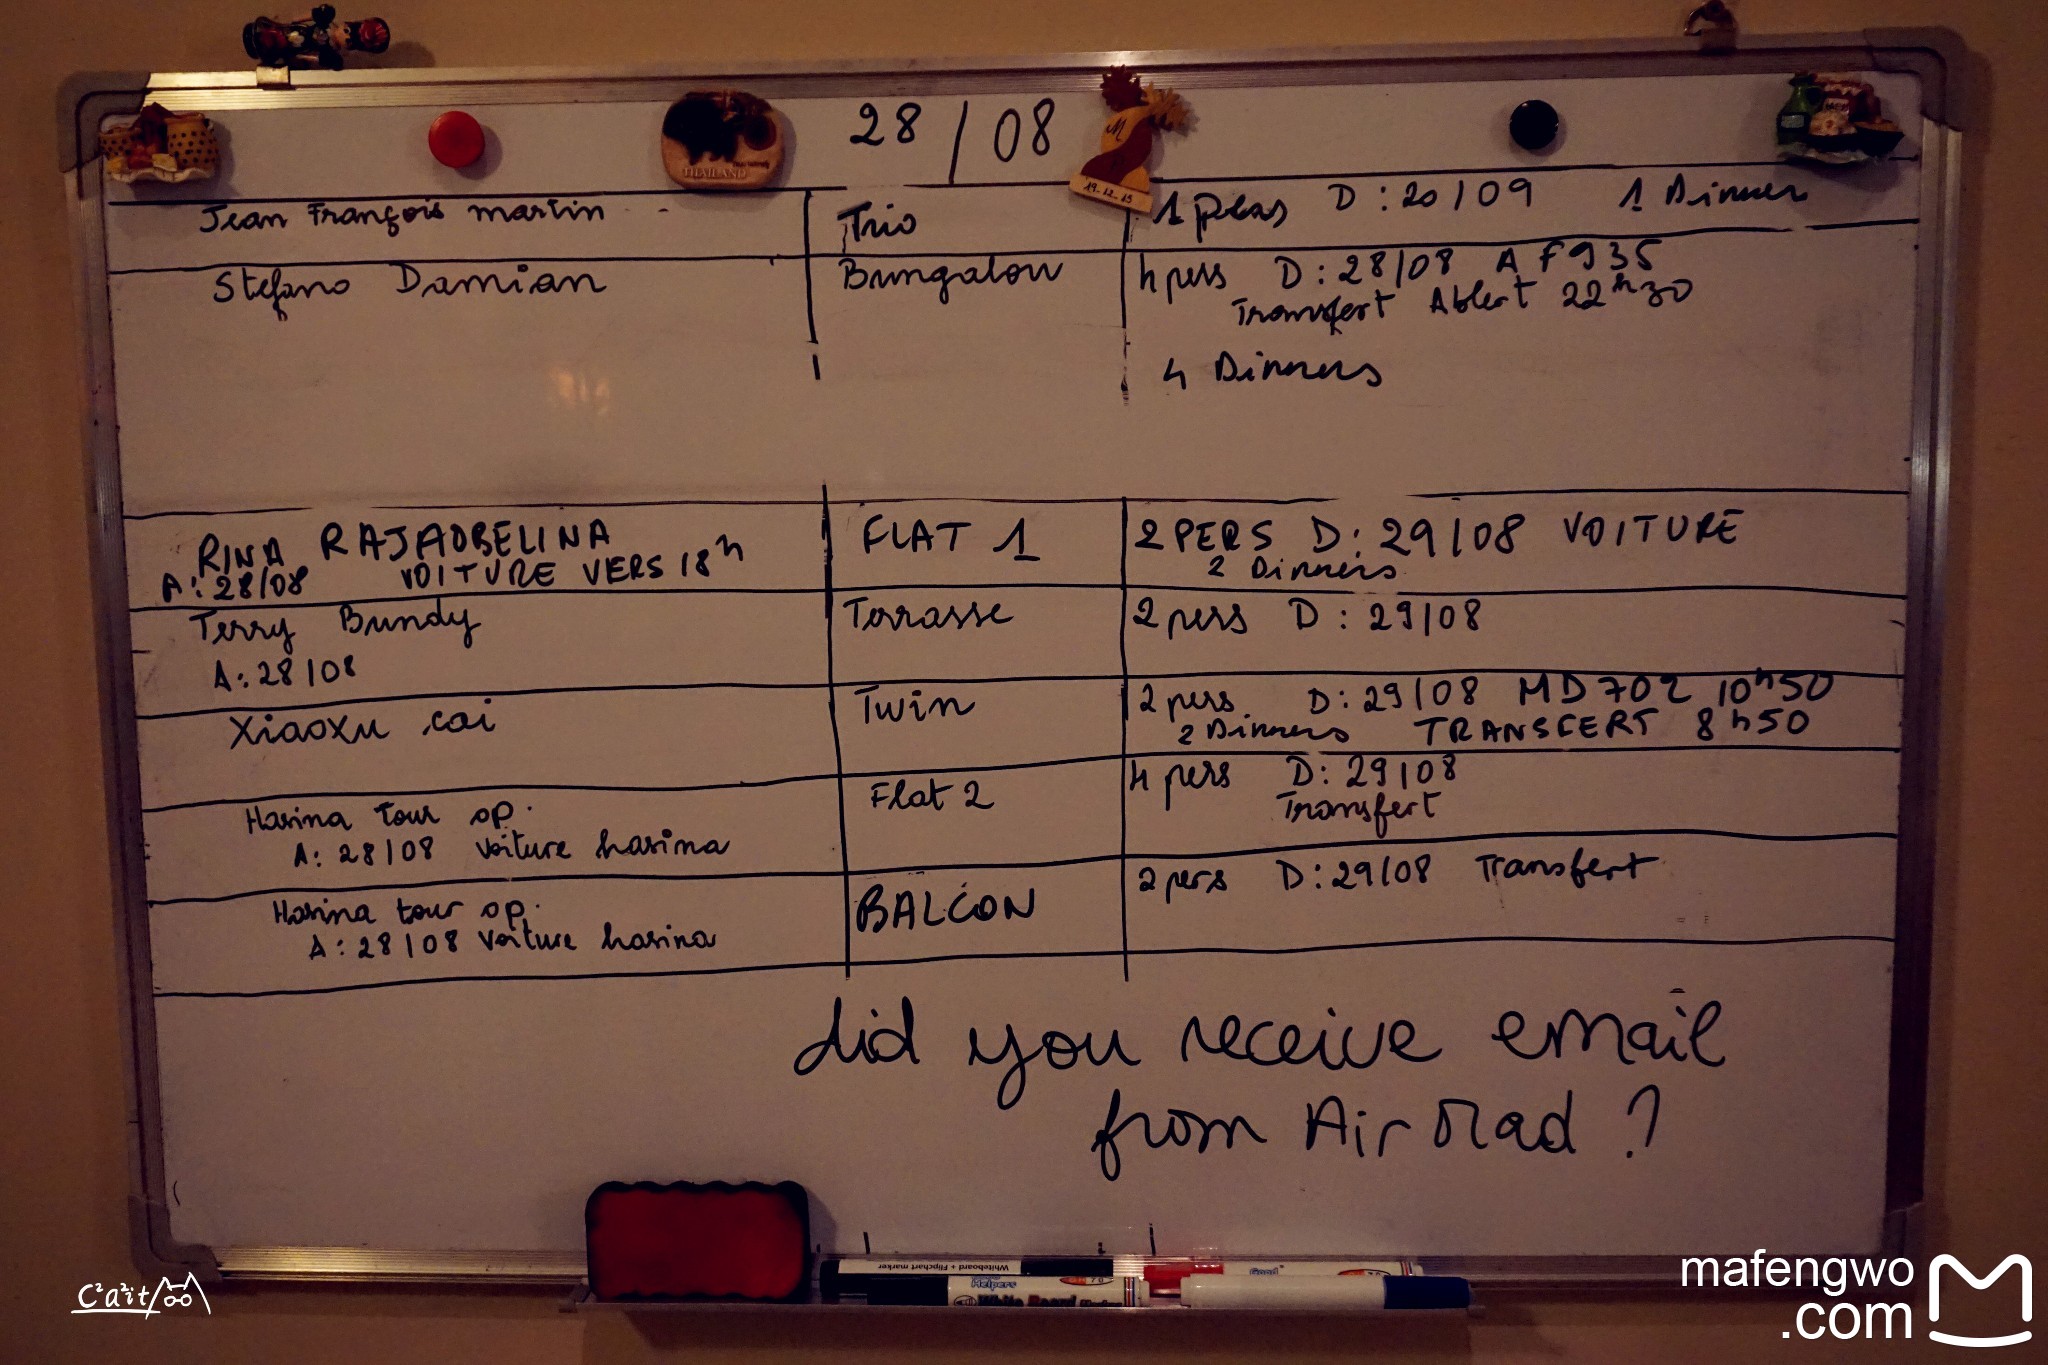 28/08
THAILAND
19-12-15
Jean François martin - Trio 1 pers D: 20/09 1 Dinner
Stefano Damian Bungalow 4 pers D: 28/08 AF935
Transfert Ablert 22h30
4 Dinners
RINA RAJAOBELINA FLAT 1 2 PERS D: 29/08 VOITURE
A: 28/08 VOITURE VERS 18h 2 Dinners
Terry Bundy Terrasse 2 pers D: 29/08
A: 28/08
Xiaoxu cai Twin 2 pers D: 29/08 MD702 10h50
2 Dinners TRANSFERT 8h50
Hasina tour op. Flat 2 4 pers D: 29/08
A: 28/08 voiture hasina Transfert
Hasina tour op. BALCON 2 pers D: 29/08 Transfert
A: 28/08 voiture hasina
did you receive email
from Air Mad ?
Whiteboard + Flipchart marker
Helpers
White Board Marker
Good
mafengwo
.com